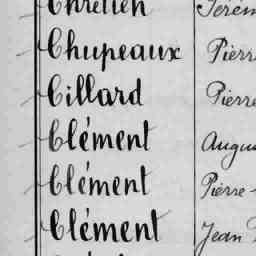 Chrétien
Chupeaux Pierre
Cillard Pierre
Clément
Clément Pierre-
Clément Jean